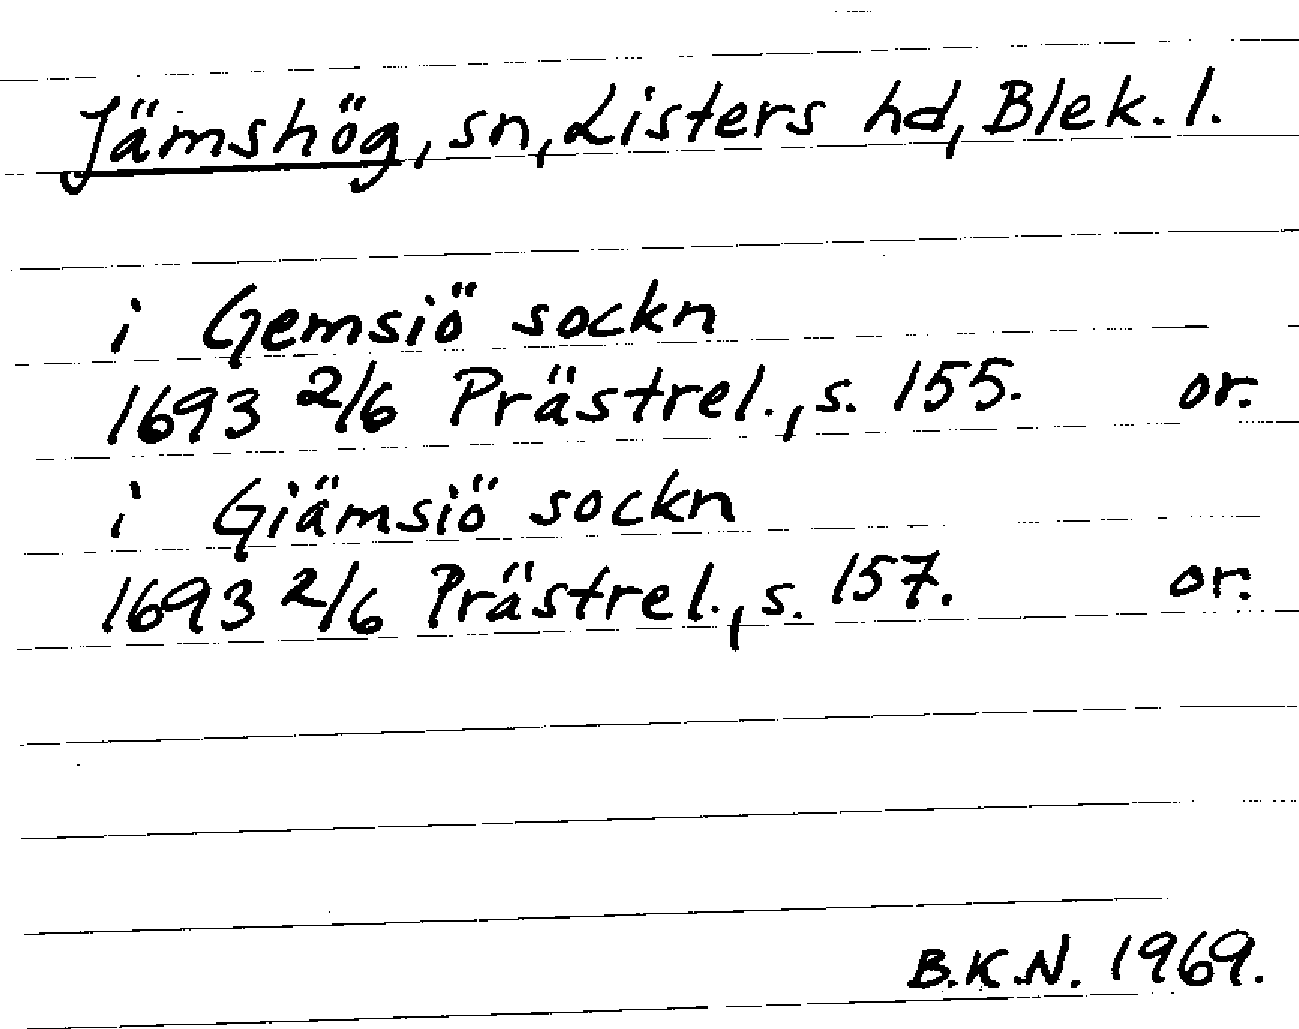 Jämshög, sn, Listers hd, Blek. l.
i Gemsiö sockn
1693 2/6 Prästrel., s. 155. or.
i Giämsiö sockn
1693 2/6 Prästrel., s. 157. or.
B.K.N. 1969.